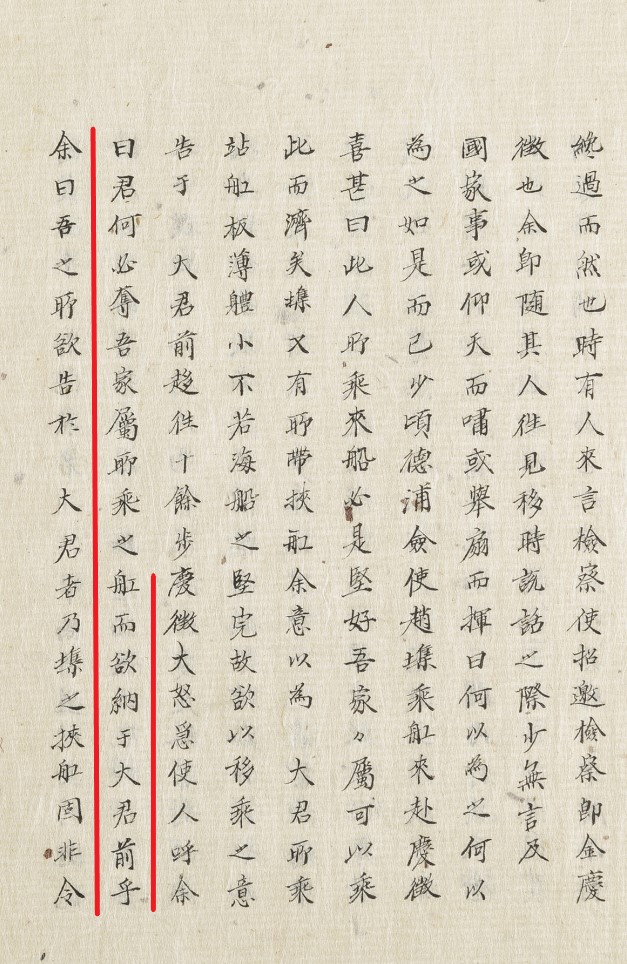 纔過而然也時有人來言檢察使招邀檢察卽金慶
徵也余卽隨其人徃見移時說話之際少無言及
國家事或仰天而嘯或擧扇而揮曰何以爲之何以
爲之如是而已少頃德浦僉使趙壎乘舡來赴慶徵
喜甚曰此人所乘來船必是堅好吾家々屬可以乘
此而濟矣壎又有所帶挾舡余意以爲 大君所乘
站舡板薄體小不若海船之堅完故欲以移乘之意
告于 大君前趍徃十餘步慶徵大怒急使人呼余
曰君何必奪吾家屬所乘之舡而欲納于大君前乎
余曰吾之所欲告於 大君者乃壎之挾舡固非令